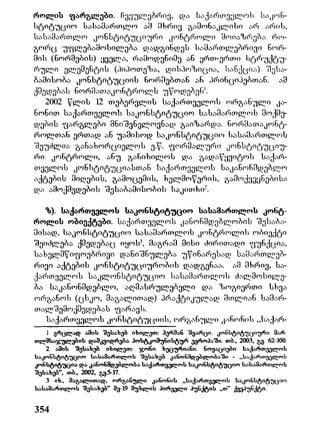 როლის ფარგლები. ჩვეულებრივ, და საქართველოს საკონ-
სტიტუციო სასამართლო ამ მხრივ გამონაკლისი არ არის,
სასამართლო კონსტიტუციური კონტროლი მოიაზრება რო-
გორც უფლებამოსილება დადგინდეს სამართლებრივი ნორ-
მის (ნორმების) ყველა, რამოდენიმე ან ერთ-ერთი სტრუქტუ-
რული ელემენტის (ჰიპოთეზა, დისპოზიცია, სანქცია) შესა-
ბამისობა კონსტიტუციის ნორმებთან ან პრინციპებთან. ამ
ქმედებას ნორმათაკონტროლს უწოდებენ¹.
2002 წლის 12 თებერვლის საქართველოს ორგანული კა-
ნონით საქართველოს საკონსტიტუციო სასამართლოს მოქმე-
დების ფარგლები მნიშვნელოვნად გაიზარდა. ნორმათაკონტ-
როლთან ერთად ან უამისოდ საკონსტიტუციო სასამართლოს
შეუძლია განახორციელოს ე.წ. ფორმალური კონსტიტუციუ-
რი კონტროლი, ანუ განიხილოს და გადაწყვიტოს საქარ-
თველოს კონსტიტუციასთან საქართველოს საკანონმდებლო
აქტების მიღების, გამოცემის, ხელმოწერის, გამოქვეყნებისა
და ამოქმედების შესაბამისობის საკითხი².
ზ). საქართველოს საკონსტიტუციო სასამართლოს კონტ-
როლის ობიექტები. საქართველოს კანონმდებლობის შესაბა-
მისად, საკონსტიტუციო სასამართლოს კონტროლის ობიექტი
შეიძლება ქმედებაც იყოს³, მაგრამ მისი ძირითადი ფუნქცია,
სახელმწიფოებრივი დანიშნულება უწინარესად სამართლებ-
რივი აქტების კონსტიტუციურობის დადგენაა. ამ მხრივ, სა-
ქართველოს საკონსტიტუციო სასამართლოს ძალმოსილე-
ბა საკანონმდებლო, აღმასრულებელი და ზოგიერთი სხვა
ორგანოს (ცსკო, მაგალითად) პრაქტიკულად მთლიან სამარ-
თალშემოქმედებას ფარავს.
საქართველოს კონსტიტუციის, ორგანული კანონის „საქარ-
1 ვრცლად ამის შესახებ იხილეთ: ჰერმან შვარცი. კონსტიტუციური მარ-
თლმსაჯულების დამკვიდრება პოსტკომუნისტურ ევროპაში. თბ., 2003, გვ. 62-100.
2 ამის შესახებ იხილეთ: ჯონი ხეცურიანი. ნოვაციები საქართველოს
საკონსტიტუციო სასამართლოს შესახებ კანონმდებლობაში - „საქართველოს
კონსტიტუცია და კანონმდებლობა საქართველოს საკონსტიტუციო სასამართლოს
შესახებ“, თბ., 2002, გვ.5-17.
3 იხ., მაგალითად, ორგანული კანონის „საქართველოს საკონსტიტუციო
სასამართლოს შესახებ“ მე-19 მუხლის პირველი პუნქტის „თ“ ქვეპუნქტი.
354